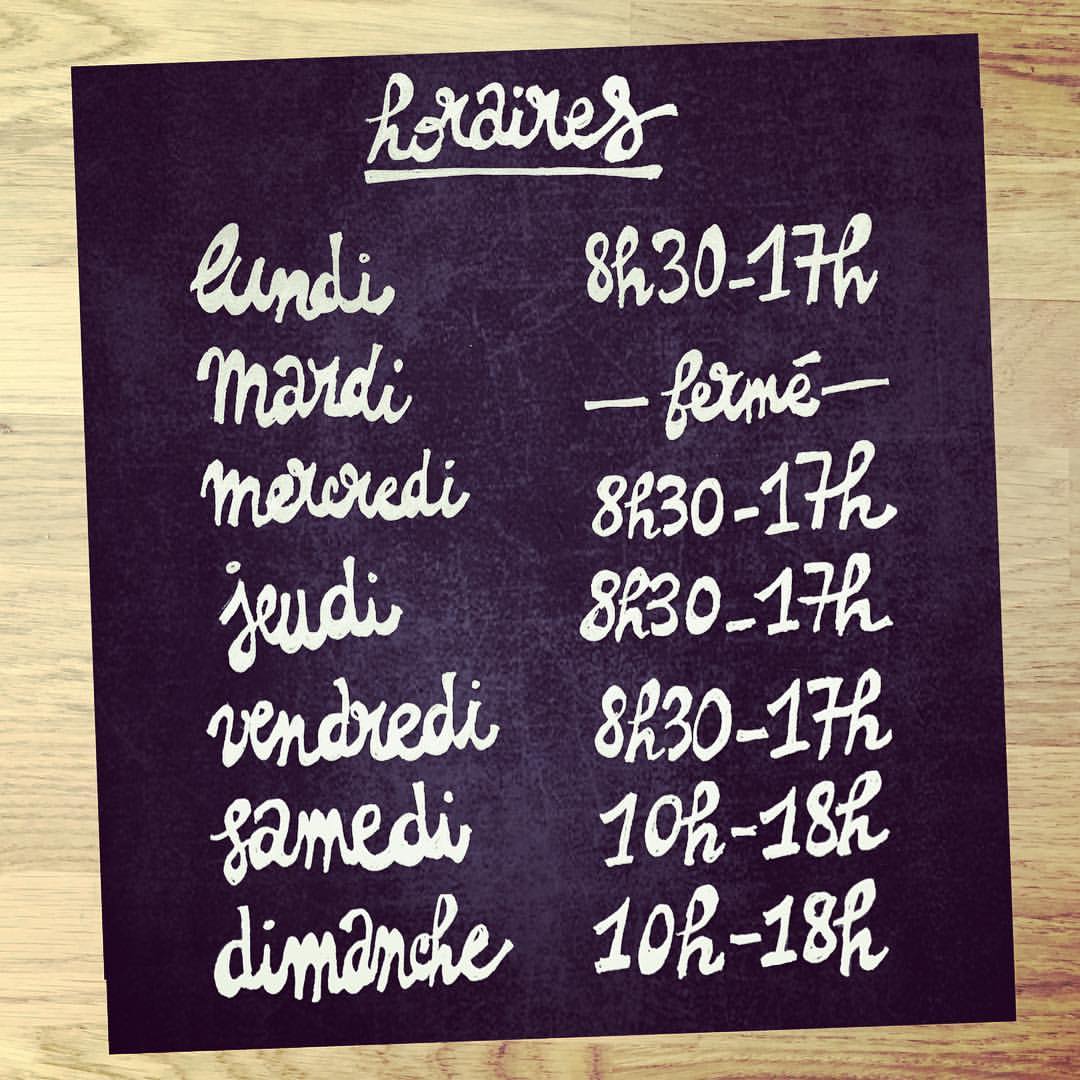 horaires
lundi 8h30-17h
Mardi — fermé —
mercredi 8h30-17h
jeudi 8h30-17h
vendredi 8h30-17h
samedi 10h-18h
dimanche 10h-18h